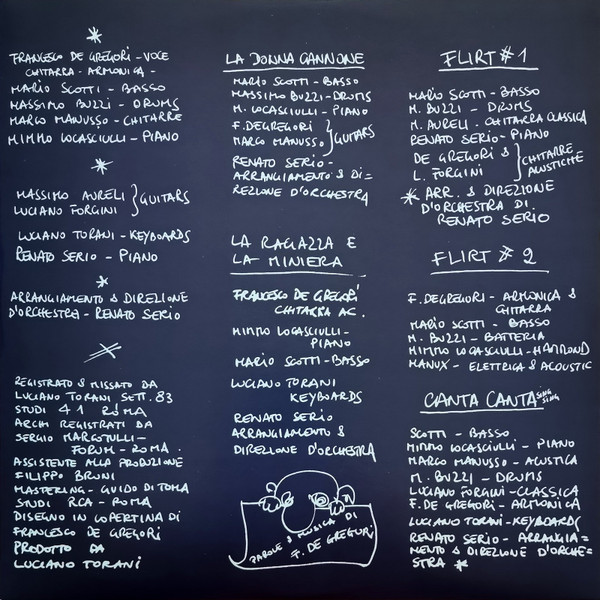 FRANCESCO DE GREGORI - VOCE
CHITARRA - ARMONICA -
MARIO SCOTTI - BASSO
MASSIMO BUZZI - DRUMS
MARCO MANUSSO - CHITARRE
MIMMO LOCASCIULLI - PIANO
MASSIMO AURELI } GUITARS
LUCIANO FORGINI
LUCIANO TORANI - KEYBOARDS
RENATO SERIO - PIANO
ARRANGIAMENTO & DIREZIONE
D'ORCHESTRA - RENATO SERIO
REGISTRATO & MISSATO DA
LUCIANO TORANI SETT. 83
STUDI 41 ROMA
ARCHI REGISTRATI DA
SERGIO MARCOTULLI -
FORUM - ROMA
ASSISTENTE ALLA PRODUZIONE
FILIPPO BRUNI
MASTERING - GUIDO DI TOMA
STUDI RCA - ROMA
DISEGNO IN COPERTINA DI
FRANCESCO DE GREGORI
PRODOTTO DA
LUCIANO TORANI
LA DONNA CANNONE
MARIO SCOTTI - BASSO
MASSIMO BUZZI - DRUMS
M. LOCASCIULLI - PIANO
F. DEGREGORI } GUITARS
MARCO MANUSSO
RENATO SERIO -
ARRANGIAMENTO & DI=
REZIONE D'ORCHESTRA
LA RAGAZZA E
LA MINIERA
FRANCESCO DE GREGORI
CHITARRA AC.
MIMMO LOCASCIULLI -
PIANO
MARIO SCOTTI - BASSO
LUCIANO TORANI
KEYBOARDS
RENATO SERIO
ARRANGIAMENTO &
DIREZIONE D'ORCHESTRA
PAROLE & MUSICA DI
F. DE GREGORI
FLIRT #1
MARIO SCOTTI - BASSO
M. BUZZI - DRUMS
M. AURELI - CHITARRA CLASSICA
RENATO SERIO - PIANO
DE GREGORI & } CHITARRE
L. FORGINI ACUSTICHE
* ARR. & DIREZIONE
D'ORCHESTRA DI
RENATO SERIO
FLIRT # 2
F. DEGREGORI - ARMONICA &
CHITARRA
MARIO SCOTTI - BASSO
M. BUZZI - BATTERIA
MIMMO LOCASCIULLI - HAMMOND
MANUX - ELETTRICA & ACOUSTIC
CANTA CANTA SING SING
SCOTTI - BASSO
MIMMO LOCASCIULLI - PIANO
MARCO MANUSSO - ACUSTICA
M. BUZZI - DRUMS
LUCIANO FORGINI - CLASSICA
F. DE GREGORI - ARMONICA
LUCIANO TORANI - KEYBOARDS
RENATO SERIO - ARRANGIA=
MENTO & DIREZIONE D'ORCHE=
STRA *